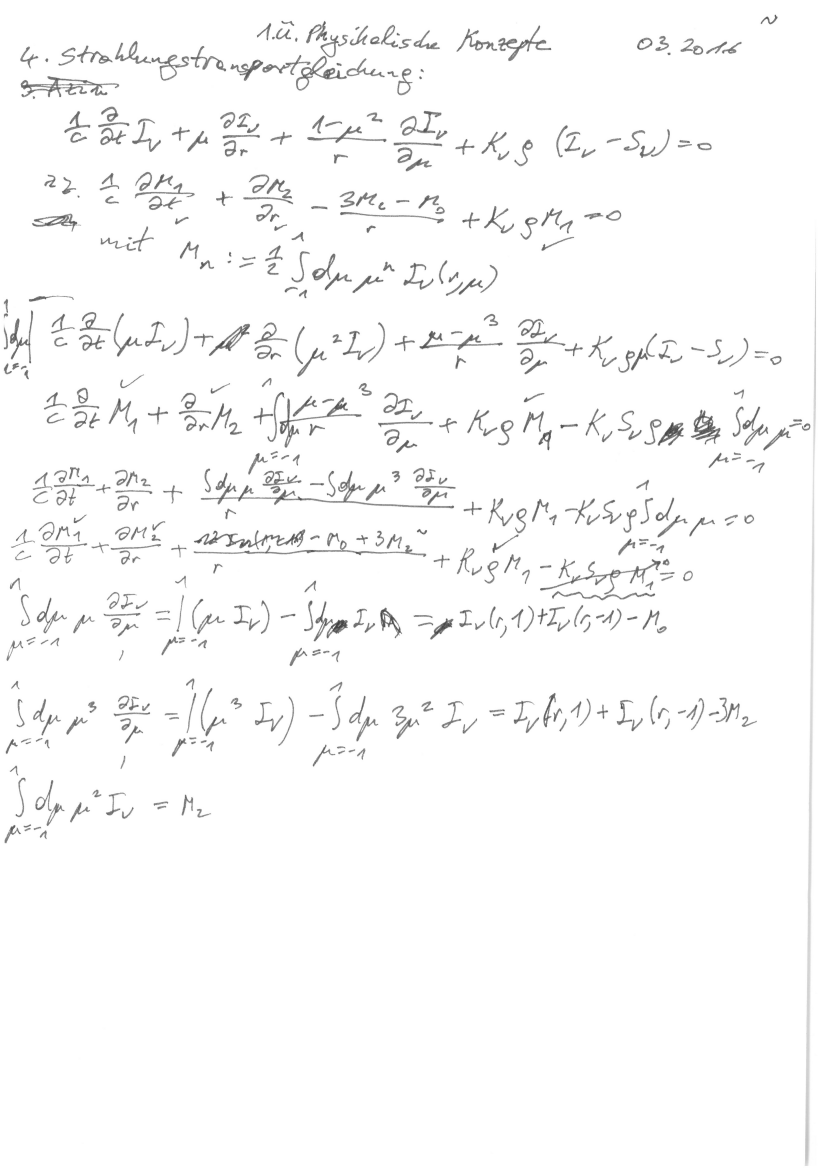 ~
1.Ü. Physikalische Konzepte 03.2016
4. Strahlungstransportgleichung:
1/c ∂/∂t I_ν + μ ∂I_ν/∂r + (1-μ²)/r ∂I_ν/∂μ + K_ν ρ (I_ν - S_ν) = 0
zz. 1/c ∂M_1/∂t + ∂M_2/∂r - (3M_2 - M_0)/r + K_ν ρ M_1 = 0
mit M_n := 1/2 ∫_{-1}^{1} dμ μ^n I_ν(r,μ)
∫_{μ=-1}^{1} dμ | 1/c ∂/∂t (μI_ν) + ∂/∂r (μ²I_ν) + (μ-μ³)/r ∂I_ν/∂μ + K_ν ρ μ(I_ν - S_ν) = 0
1/c ∂/∂t M_1 + ∂/∂r M_2 + ∫_{μ=-1}^{1} dμ (μ-μ³)/r ∂I_ν/∂μ + K_ν ρ M_1 - K_ν S_ν ρ ∫_{μ=-1}^{1} dμ μ = 0
1/c ∂M_1/∂t + ∂M_2/∂r + (∫dμ μ ∂I_ν/∂μ - ∫dμ μ³ ∂I_ν/∂μ)/r + K_ν ρ M_1 - K_ν S_ν ρ ∫_{μ=-1}^{1} dμ μ = 0
1/c ∂M_1/∂t + ∂M_2/∂r + (- M_0 + 3M_2)/r + K_ν ρ M_1 - K_ν S_ν ρ M_1 = 0
∫_{μ=-1}^{1} dμ μ ∂I_ν/∂μ = |_{μ=-1}^{1} (μ I_ν) - ∫_{μ=-1}^{1} dμ I_ν = I_ν(r,1) + I_ν(r,-1) - M_0
∫_{μ=-1}^{1} dμ μ³ ∂I_ν/∂μ = |_{μ=-1}^{1} (μ³ I_ν) - ∫_{μ=-1}^{1} dμ 3μ² I_ν = I_ν(r,1) + I_ν(r,-1) - 3M_2
∫_{μ=-1}^{1} dμ μ² I_ν = M_2